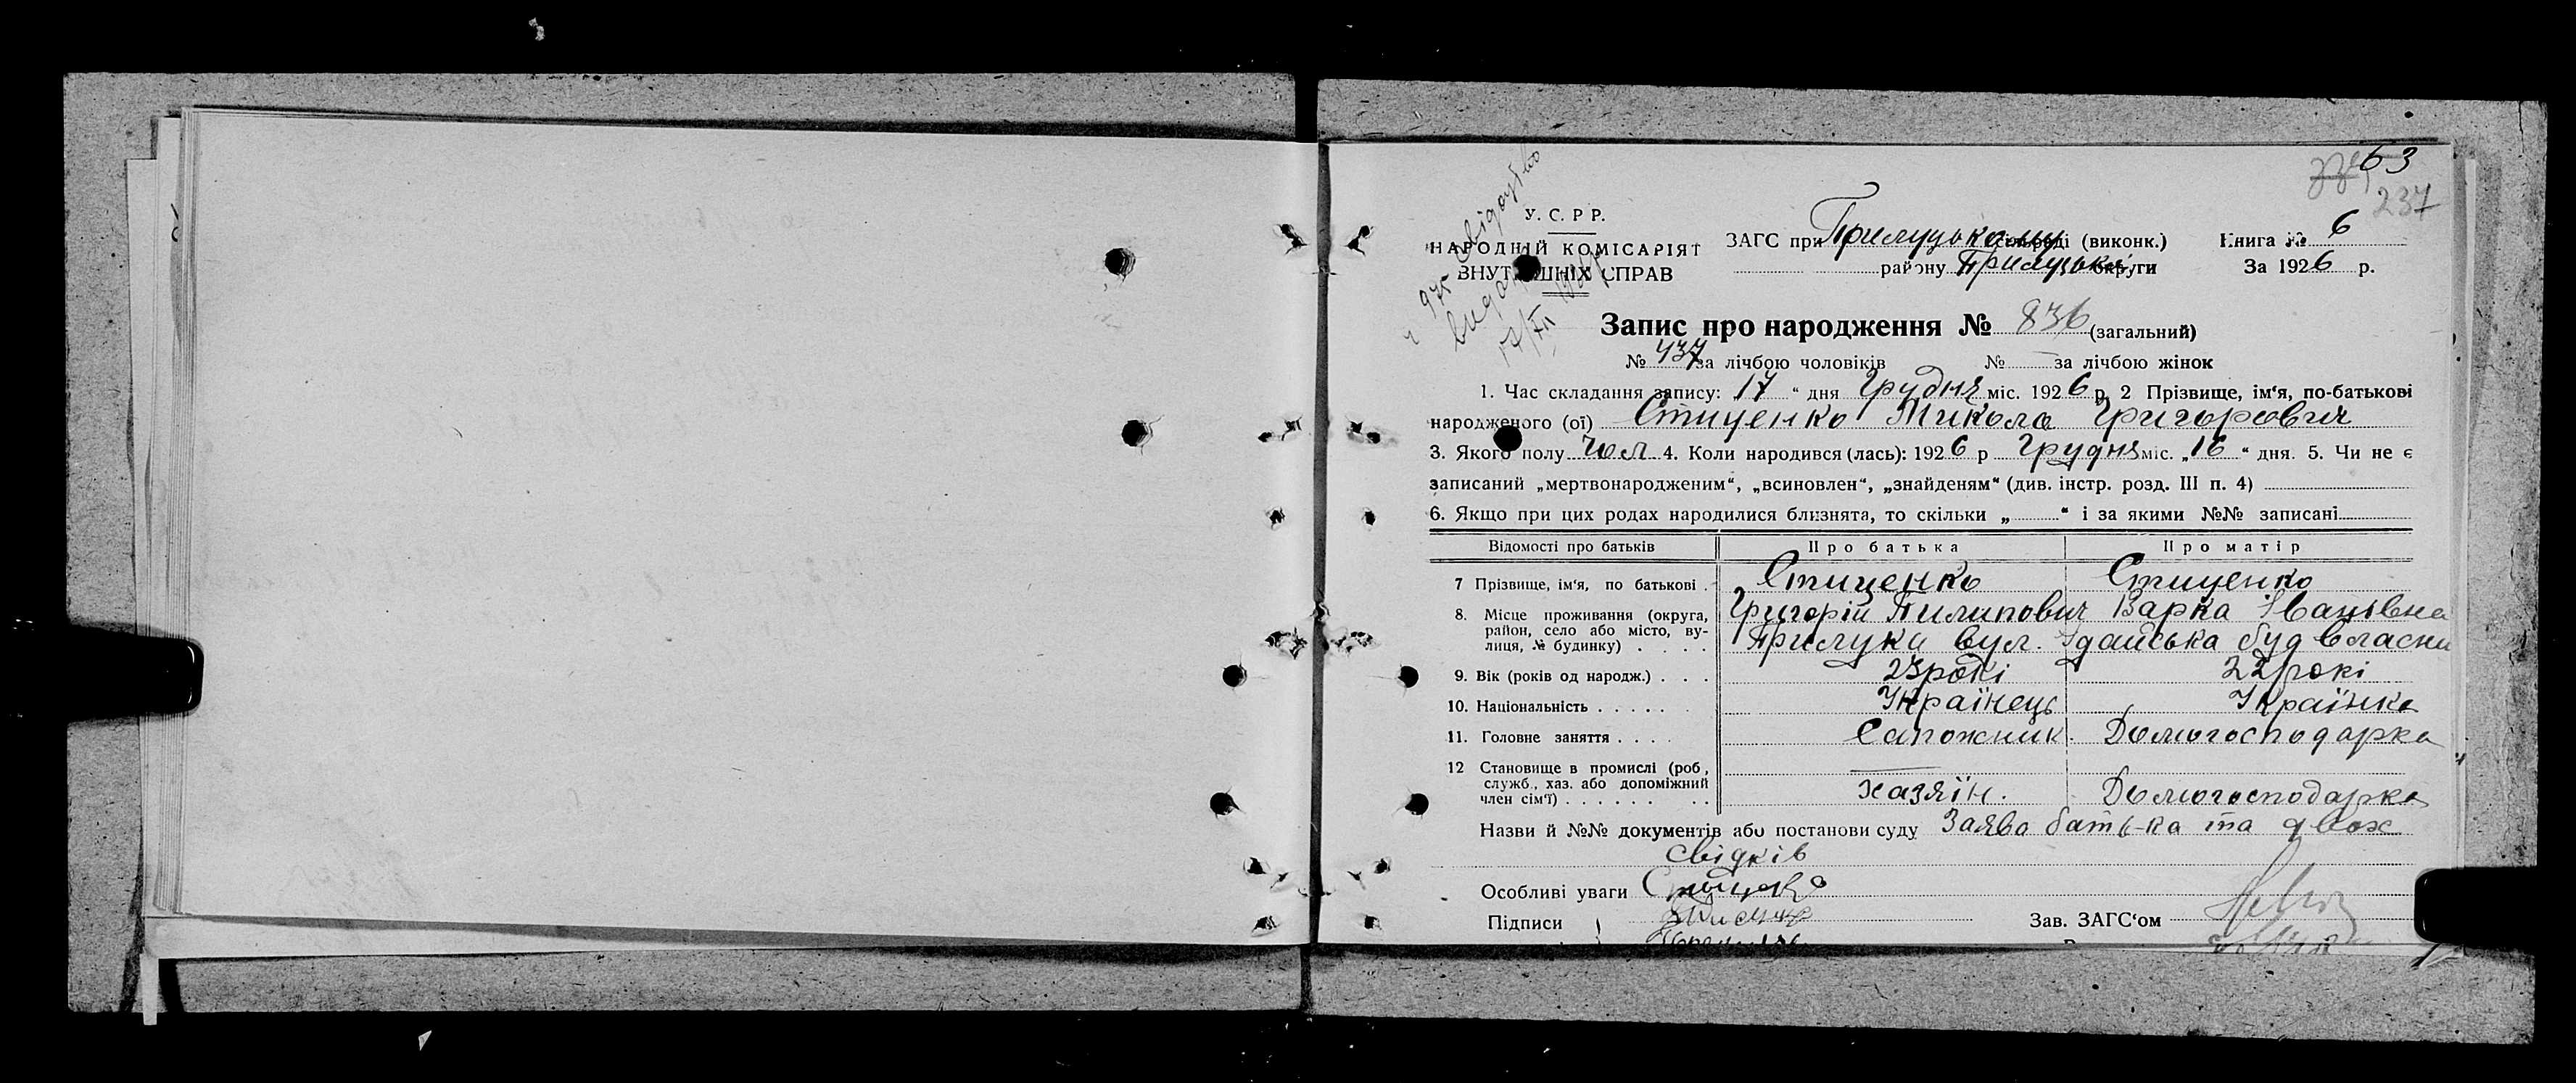 63
237
Свідоцтво
видано
У. С. Р Р.
НАРОДНІЙ КОМІСАРІЯТ
ВНУТРІШНІХ СПРАВ
ЗАГС при Прилуцькому міськраді (виконк.) Книга № 6
району Прилуцької округи За 1926 р.
Запис про народження № 836 (загальний)
№ 437 за лічбою чоловіків № — за лічбою жінок
1. Час складання запису: „17“ дня Грудня міс. 1926 р. 2 Прізвище, ім‘я, по-батькові
народженого (ої) Стиценко Микола Григорович
3. Якого полу чол 4. Коли народився (лась): 1926 р Грудня міс. „16“ дня. 5. Чи не є
записаний „мертвонародженим“, „всиновлен“, „знайденям“ (див. інстр. розд. III п. 4)
6. Якщо при цих родах народилися близнята, то скільки „ “ і за якими №№ записані
Відомості про батьків Про батька Про матір
7 Прізвище, ім‘я, по батькові . Стиценко Стиценко
Григорій Пилипович Варка Іванівна
8. Місце проживання (округа,
район, село або місто, ву-
лиця, № будинку) . . . . Прилука вул. Ідайська буд власни
9. Вік (років од народж.) . . . 23 рокі 22 рокі
10. Національність . . . . . Українець Українка
11. Головне заняття . . . . Сапожник Домогосподарка
12 Становище в промислі (роб,
служб., хаз. або допоміжний
член сім‘ї) . . . . . . . . хазяїн. Домогосподарка
Назви й №№ документів або постанови суду Заява батька та двох
свідків
Особливі уваги
Підписи Зав. ЗАГС‘ом